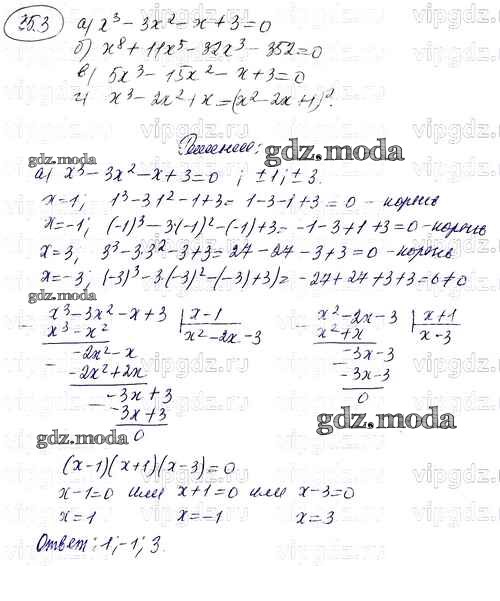 25.3 а) x³ - 3x² - x + 3 = 0
б) x⁸ + 11x⁵ - 32x³ - 352 = 0
в) 5x³ - 15x² - x + 3 = 0
г) x³ - 2x² + x = (x² - 2x + 1)².
Решение:
gdz.moda
а) x³ - 3x² - x + 3 = 0 ; ±1; ±3.
x=1; 1³ - 3·1² - 1 + 3 = 1 - 3 - 1 + 3 = 0 - корень
x=-1; (-1)³ - 3·(-1)² - (-1) + 3 = -1 - 3 + 1 + 3 = 0 - корень
x=3, 3³ - 3·3² - 3 + 3 = 27 - 27 - 3 + 3 = 0 - корень
x=-3; (-3)³ - 3·(-3)² - (-3) + 3) = -27 + 27 + 3 + 3 = 6 ≠ 0
gdz.moda
x³ - 3x² - x + 3 | x - 1
x³ - x² | x² - 2x - 3
-2x² - x
-2x² + 2x
-3x + 3
-3x + 3
0
x² - 2x - 3 | x + 1
x² + x | x - 3
-3x - 3
-3x - 3
0
gdz.moda
gdz.moda
(x - 1)(x + 1)(x - 3) = 0
x - 1 = 0 или x + 1 = 0 или x - 3 = 0
x = 1 x = -1 x = 3
Ответ: 1; -1; 3.
vipgdz.ru